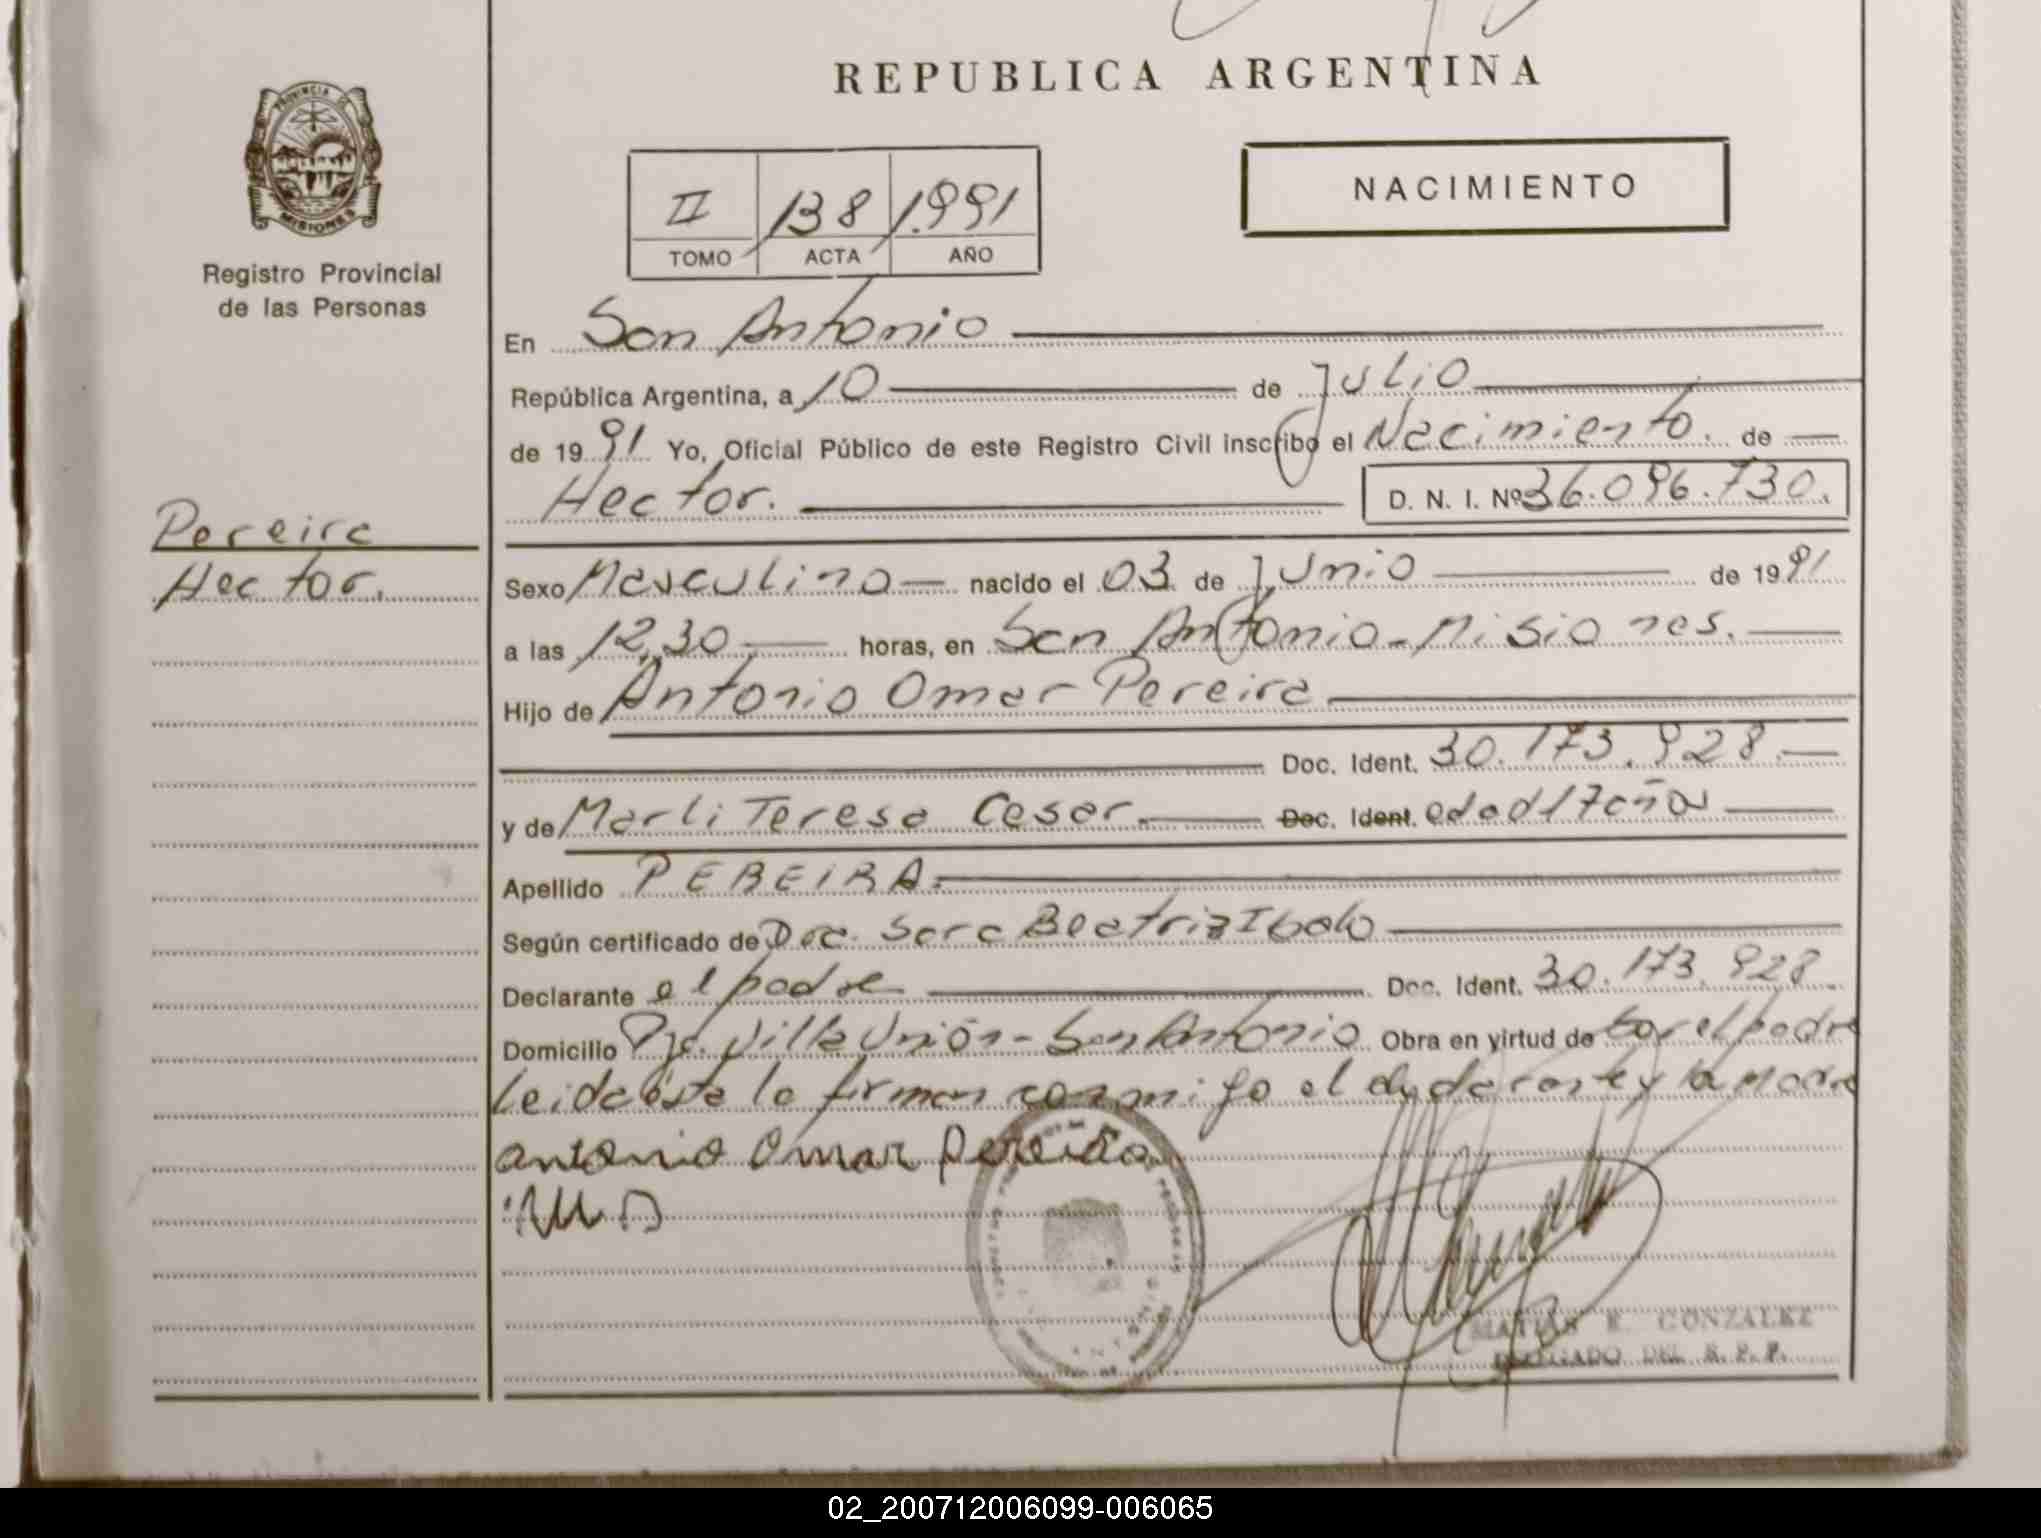 REPUBLICA ARGENTINA
PROVINCIA DE
MISIONES
Registro Provincial
de las Personas
II 138 1.991
TOMO ACTA AÑO
NACIMIENTO
En San Antonio
República Argentina, a 10 de Julio
de 1991 Yo, Oficial Público de este Registro Civil inscribo el Nacimiento. de
Hector. D. N. I. Nº 36.096.730.
Pereira
Hector.
Sexo Masculino nacido el 03 de Junio de 1991
a las 12,30 horas, en San Antonio - Misiones.
Hijo de Antonio Omar Pereira
Doc. Ident. 30.173.928.
y de Marli Teresa Cesar. Doc. Ident. edad 17 años
Apellido PEREIRA.
Según certificado de Dra. Sara Beatriz
Declarante el padre Doc. Ident. 30.173.928.
Domicilio Pje. Villa Unión - San Antonio Obra en virtud de ser el padre
Leida ésta la firman conmigo el declarante y la madre
antonio Omar Pereira
MATIAS E. GONZALEZ
DELEGADO DEL R. P. P.
02_200712006099-006065